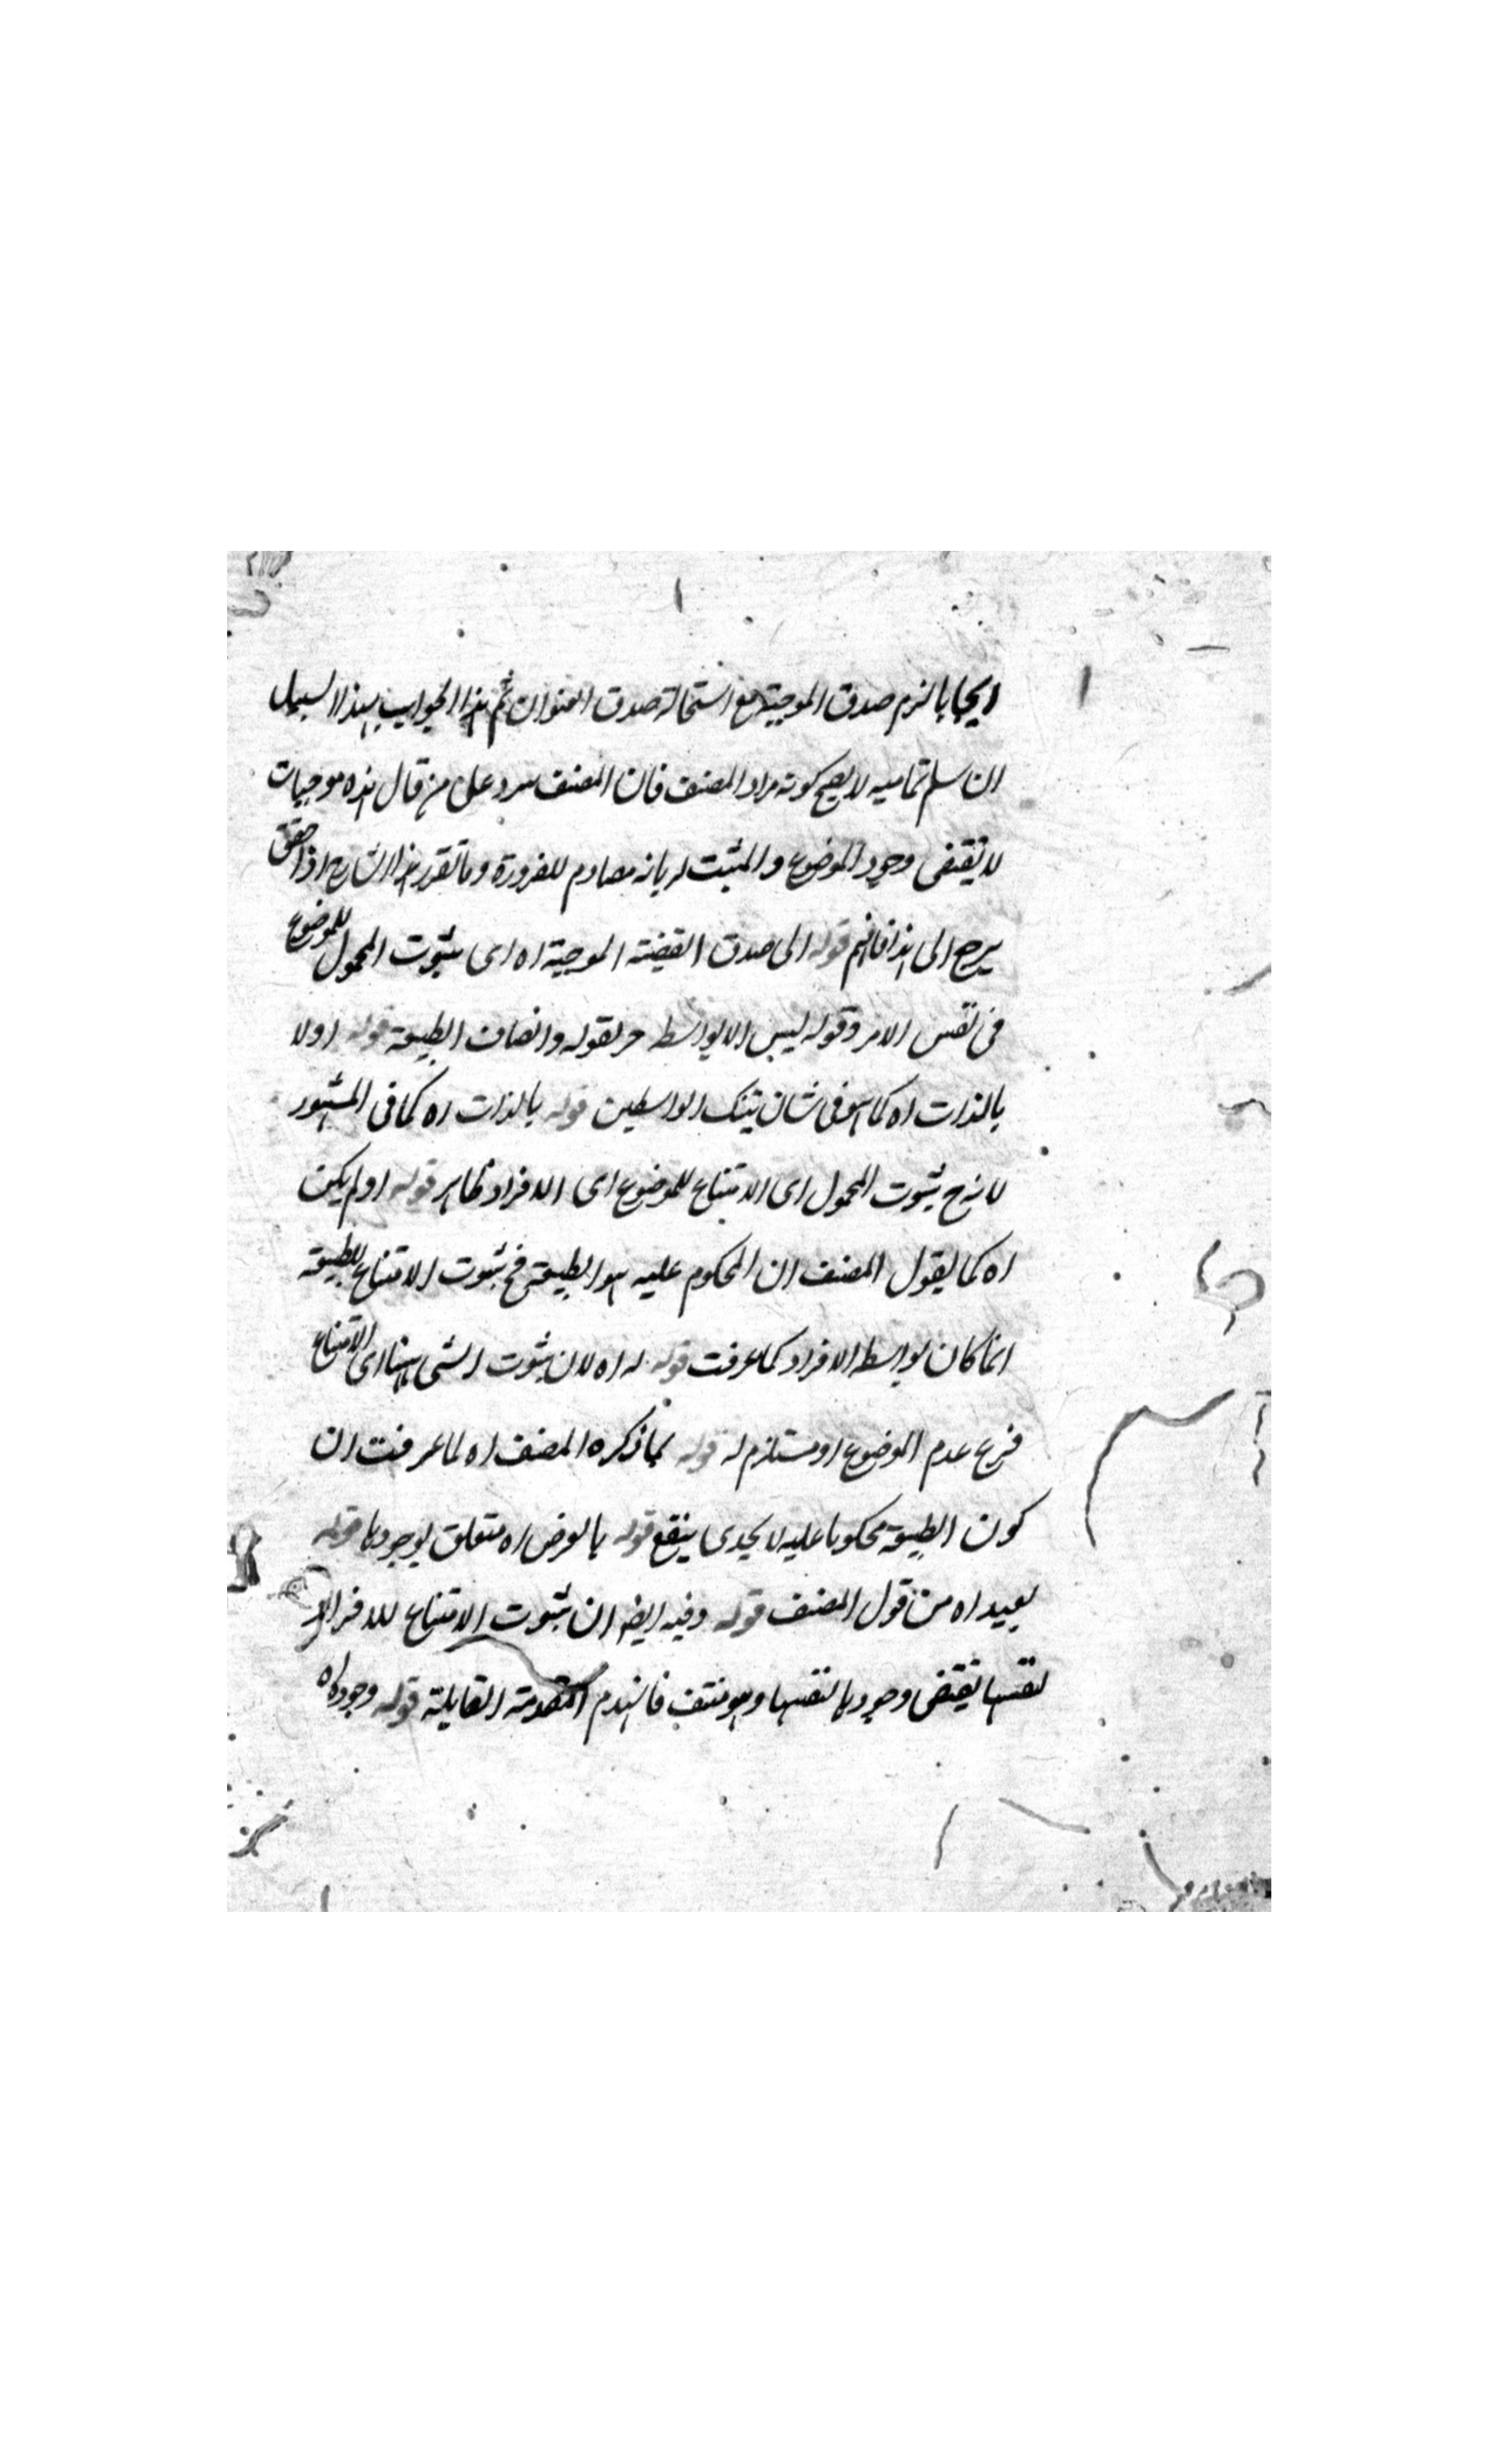 ايجابا لزم صدق الموجبة مع استحالة صدق العنوان ثم هذا الجواب بهذا السبيل
ان سلم تماميه لا يصح كونه مراد المصنف فان المصنف يرد على من قال هذه موجبات
لا يقتضى وجود الموضوع والمثبت له بانه مصادم للضرورة وما تقرر هذا الشارح اذا حقق
يرجع الى هذا فافهم قوله الى صدق القضية الموجبة اه اى ثبوت المحمول للموضوع
فى نفس الامر وقوله ليس الا بواسط لقوله واتصاف الطبيعة قوله اولا
بالذات اه كما هو فى شان تينك الواسطين قوله بالذات اه كما فى المشهور
لانه ح ثبوت المحمول اى الامتناع للموضوع اى الافراد ظاهر قوله اولم يكن
اه كما يقول المصنف ان المحكوم عليه هو الطبيعة فح ثبوت الامتناع للطبيعة
انما كان بواسط الافراد كما عرفت قوله له اه لان ثبوت الشى ههنا اى الامتناع
فرع عدم الموضوع او مستلزم له قوله بما ذكره المصنف اه لما عرفت ان
كون الطبيعة محكوما عليه لا يجدى ينفع قوله بالعرض اه متعلق بوجودها قوله
بعيد اه من قول المصنف قوله وفيه ايضه ان ثبوت الامتناع للافراد
لنفسها يقتضى وجودها لنفسها وهو منتف فانهدم المقدمة القايلة قوله وجودها اه